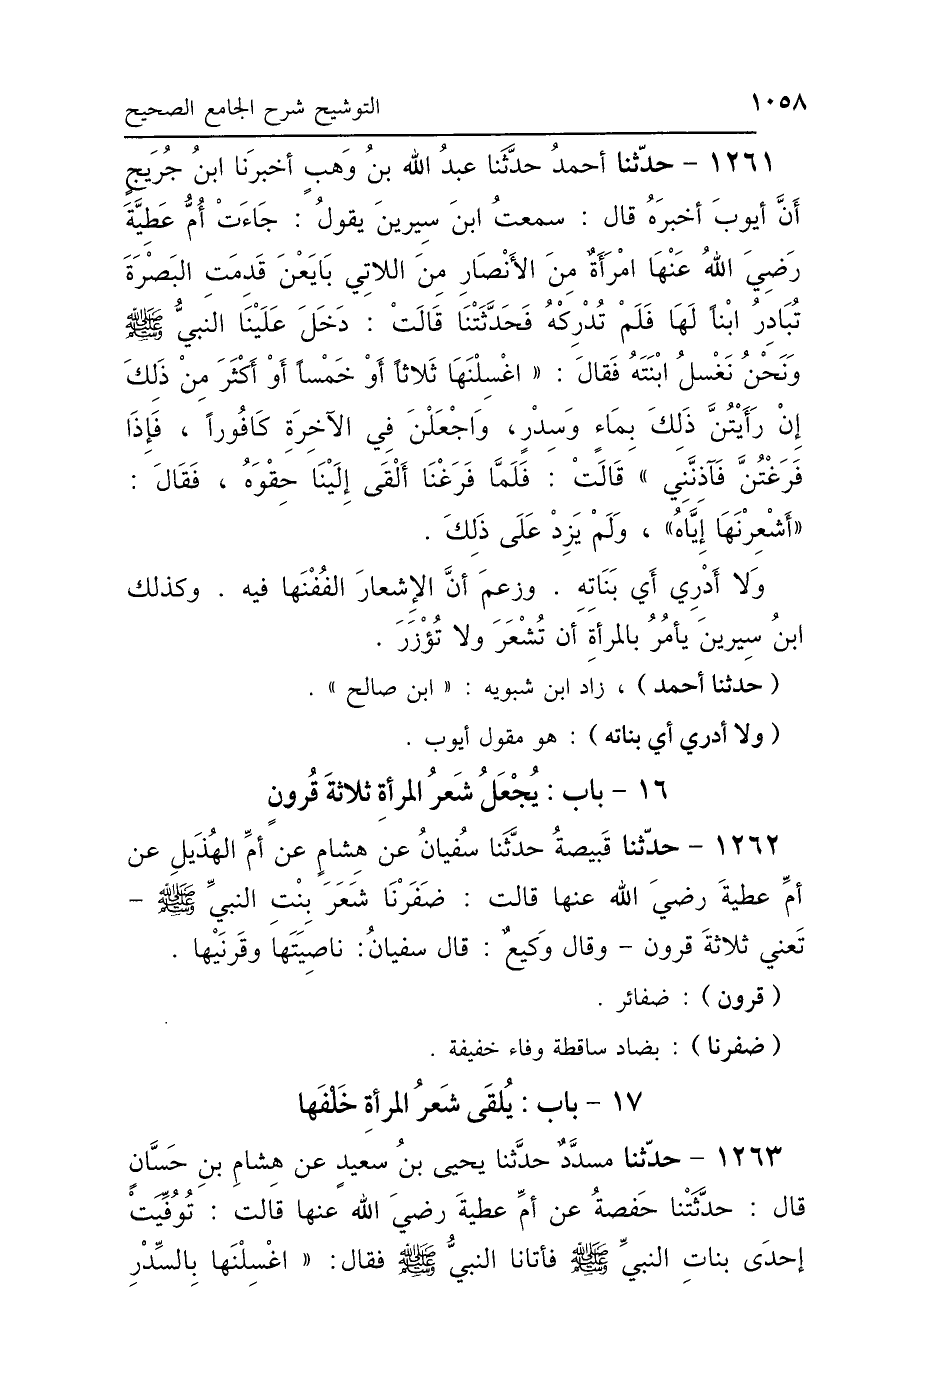 ١٠٥٨ التوشيح شرح الجامع الصحيح
١٢٦١ - حدّثنا أحمدُ حدَّثَنا عبدُ الله بنُ وَهبٍ أخبرَنا ابنُ جُرَيجٍ
أَنَّ أيوبَ أخبرَهُ قال : سمعتُ ابنَ سيرينَ يقولُ : جَاءَتْ أُمُّ عَطِيَّةَ
رَضِيَ اللهُ عَنْهَا امْرَأَةٌ مِنَ الأَنْصَارِ مِنَ اللاتي بَايَعْنَ قَدِمَتِ البَصْرَةَ
تُبَادِرُ ابْناً لَهَا فَلَمْ تُدْرِكْهُ فَحَدَّثَتْنَا قَالَتْ : دَخَلَ عَلَيْنَا النبيُّ ﷺ
وَنَحْنُ نَغْسِلُ ابْنَتَهُ فَقَالَ : « اغْسِلْنَهَا ثَلاثاً أَوْ خَمْساً أَوْ أَكْثَرَ مِنْ ذَلِكَ
إِنْ رَأَيْتُنَّ ذَلِكَ بِمَاءٍ وَسِدْرٍ، وَاجْعَلْنَ فِي الآخِرَةِ كَافُوراً ، فَإِذَا
فَرَغْتُنَّ فَآذِنَّنِي » قَالَتْ : فَلَمَّا فَرَغْنَا أَلْقَى إِلَيْنَا حِقْوَهُ ، فَقَالَ :
«أَشْعِرْنَهَا إِيَّاهُ» ، وَلَمْ يَزِدْ عَلَى ذَلِكَ .
وَلا أَدْرِي أَي بَنَاتِهِ . وزعمَ أنَّ الإشعارَ الفُفْنَها فيه . وكذلك
ابنُ سيرينَ يأمُرُ بالمرأةِ أن تُشْعَرَ ولا تُؤْزَرَ .
( حدثنا أحمد ) ، زاد ابن شبويه : « ابن صالح » .
( ولا أدري أي بناته ) : هو مقول أيوب .
١٦ - باب : يُجْعَلُ شَعرُ المرأةِ ثلاثةَ قُرونٍ
١٢٦٢ - حدّثنا قَبيصةُ حدَّثَنا سُفيانُ عن هِشامٍ عن أمِّ الهُذَيلِ عن
أمِّ عطيةَ رضيَ الله عنها قالت : ضَفَرْنَا شَعَرَ بِنْتِ النبيِّ ﷺ -
تَعني ثلاثةَ قرون - وقال وَكيعٌ : قال سفيانُ: ناصِيَتَها وقَرنَيْها .
( قرون ) : ضفائر .
( ضفرنا ) : بضاد ساقطة وفاء خفيفة .
١٧ - باب : يُلقَى شَعرُ المرأةِ خَلْفَها
١٢٦٣ - حدّثنا مسدَّدٌ حدَّثنا يحيى بنُ سعيدٍ عن هِشامِ بنِ حَسَّانٍ
قال : حدَّثَتْنا حَفصةُ عن أمِّ عطيةَ رضيَ الله عنها قالت : تُوفِّيَتْ
إحدَى بناتِ النبيِّ ﷺ فأتانا النبيُّ ﷺ فقال: « اغْسِلْنَها بِالسِّدْرِ